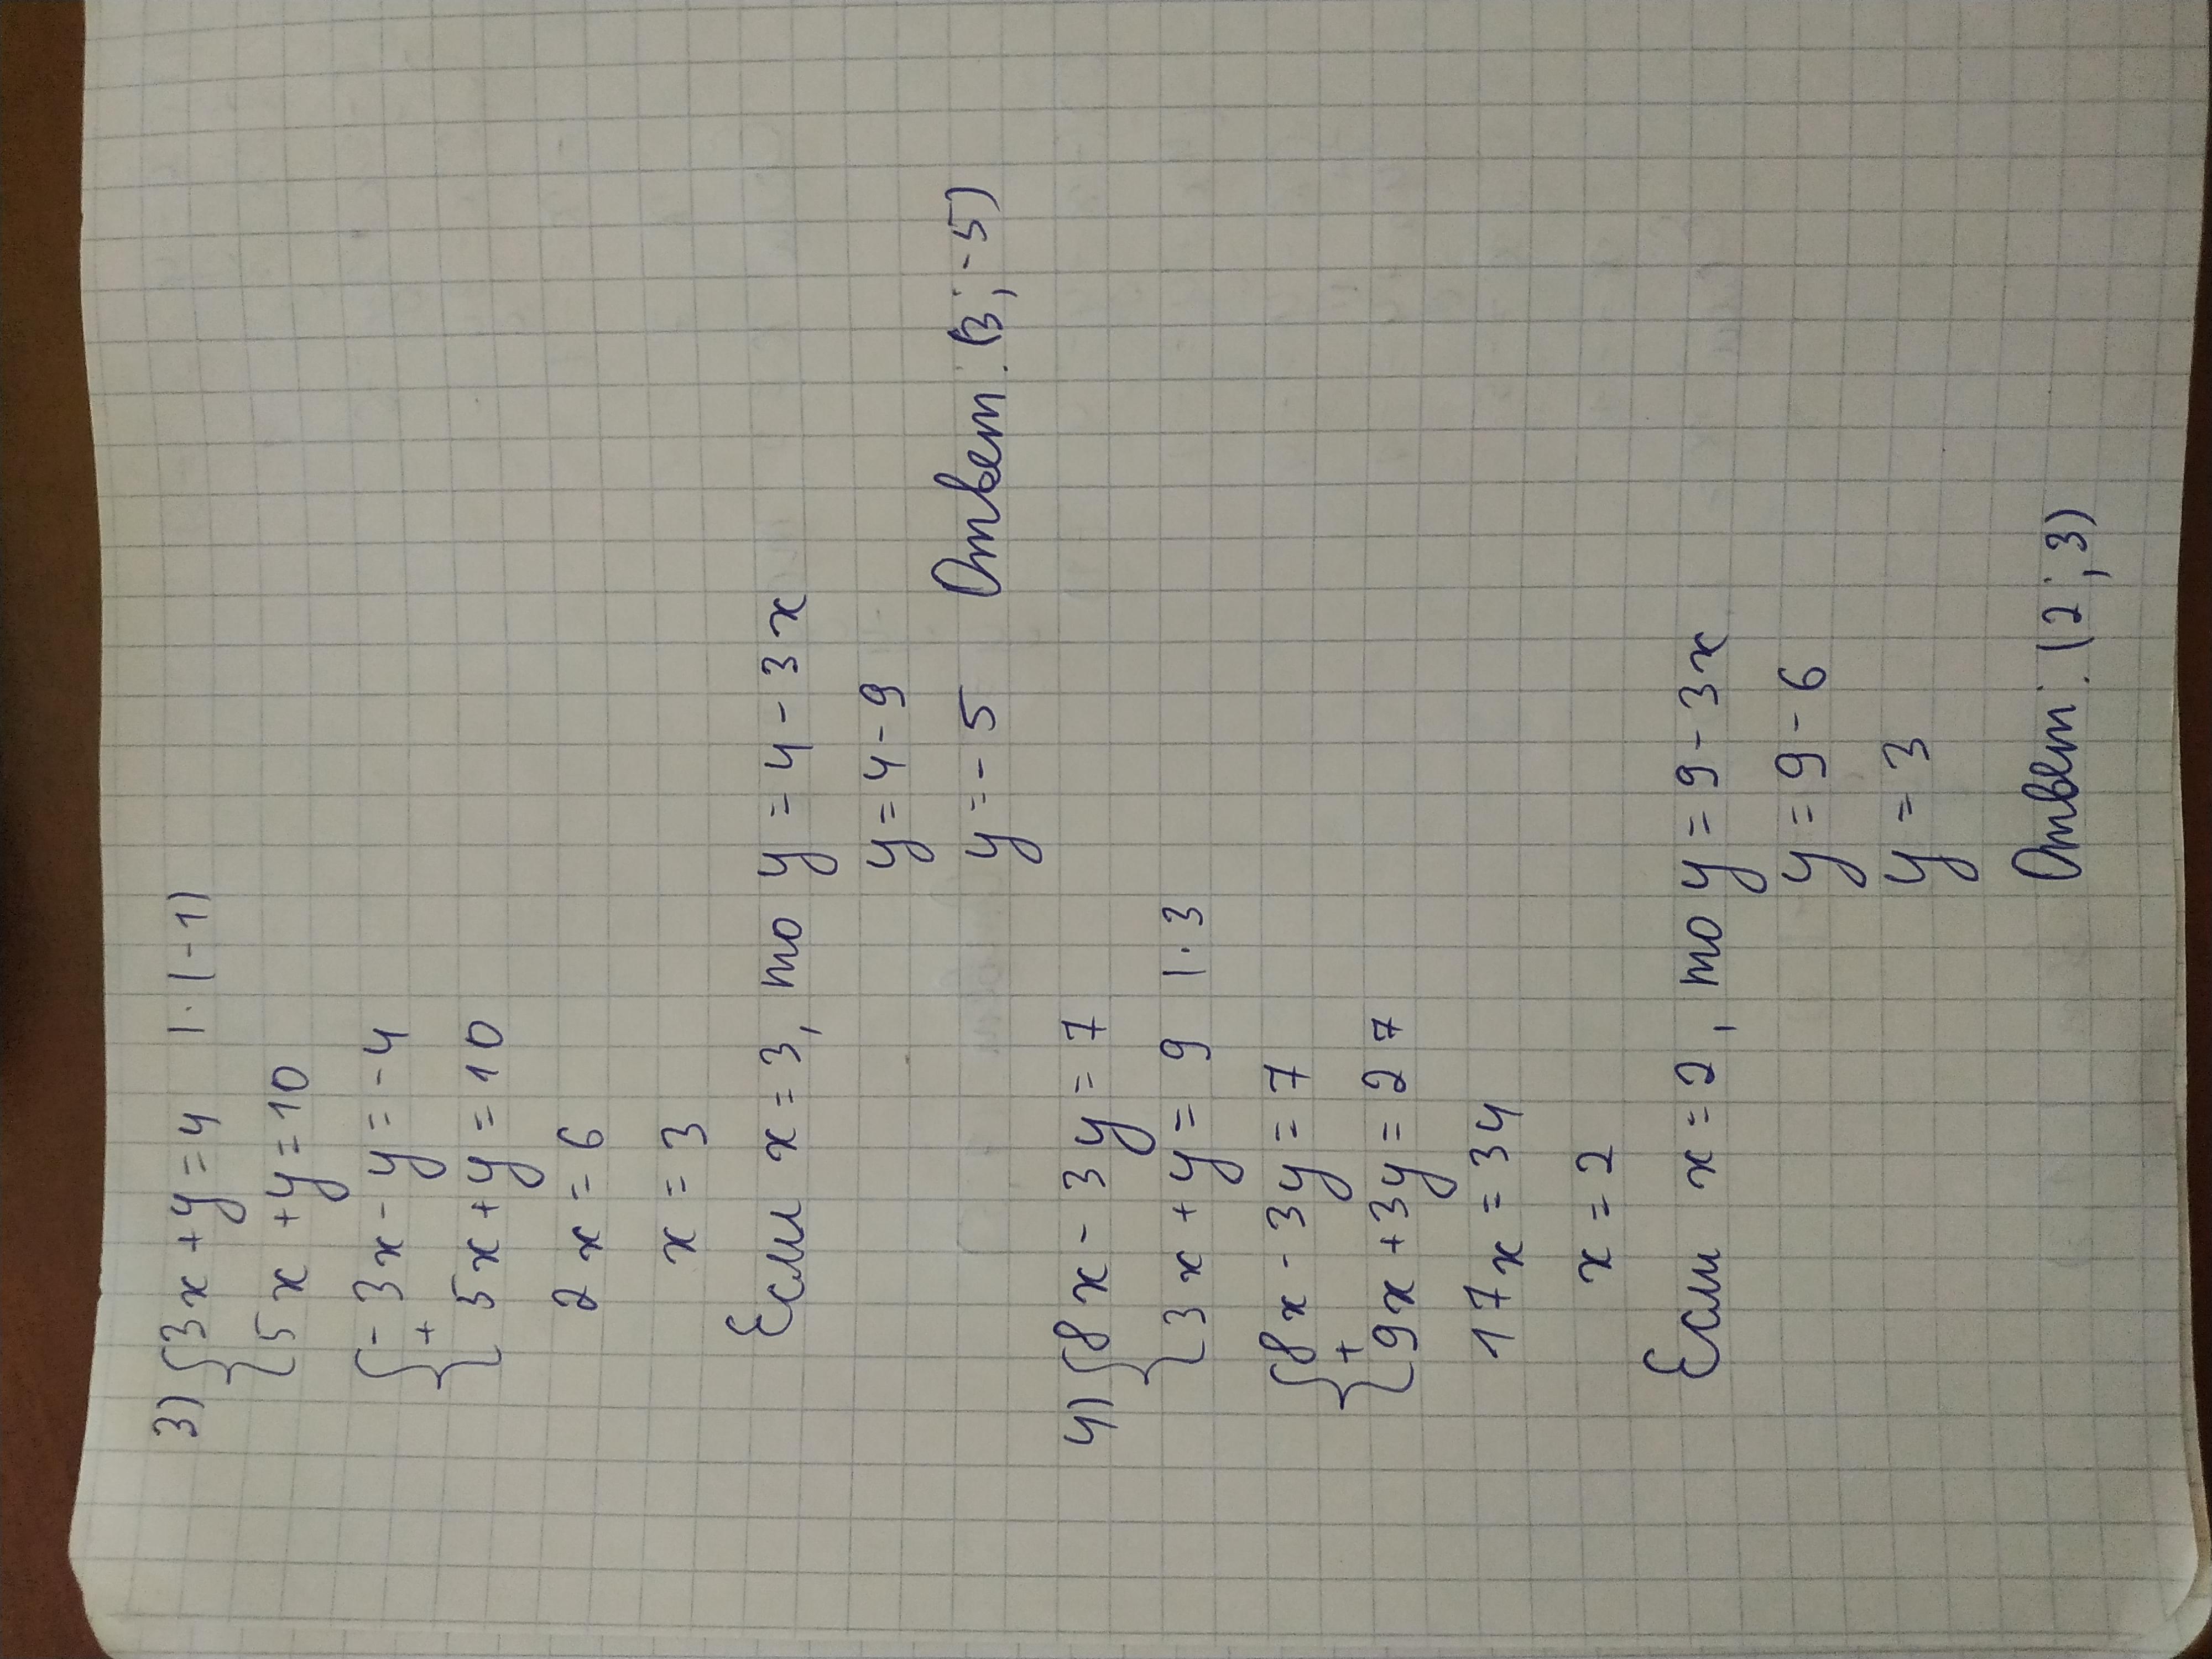 3) { 3x + y = 4 | · (-1)
{ 5x + y = 10
{ - 3x - y = - 4
+
{ 5x + y = 10
2x = 6
x = 3
Если x = 3, то y = 4 - 3x
y = 4 - 9
y = - 5 Ответ: (3; - 5)
4) { 8x - 3y = 7
{ 3x + y = 9 | · 3
{ 8x - 3y = 7
+
{ 9x + 3y = 27
17x = 34
x = 2
Если x = 2, то y = 9 - 3x
y = 9 - 6
y = 3
Ответ: (2; 3)